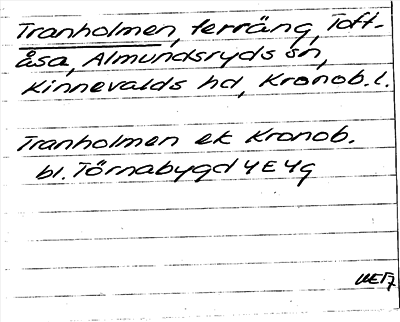 Tranholmen, terräng, Toft-
åsa, Almundsryds sn,
Kinnevalds hd, Kronob. l.
Tranholmen ek Kronob.
bl. Törnabygd 4E4g